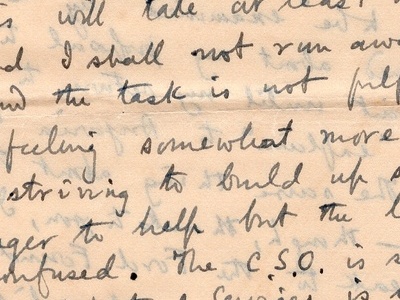 will take at least
I shall not run awa
the task is not
feeling somewhat more
striving to build up
to help but the
onfused. The C.S.O. is